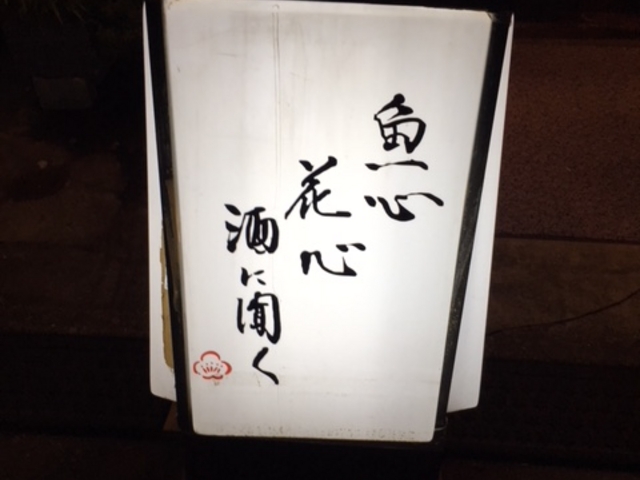 魚心
花心
酒に聞く